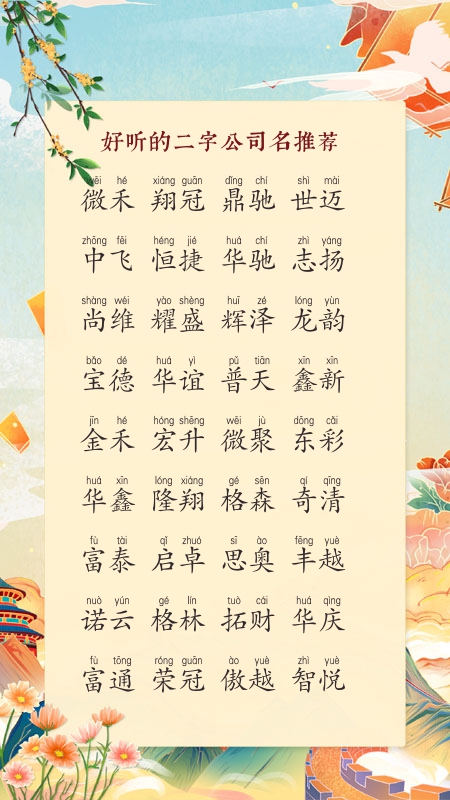 好听的二字公司名推荐
wēi hé xiáng guān dǐng chí shì mài
微禾 翔冠 鼎驰 世迈
zhōng fēi héng jié huá chí zhì yáng
中飞 恒捷 华驰 志扬
shàng wéi yào shèng huī zé lóng yùn
尚维 耀盛 辉泽 龙韵
bǎo dé huá yì pǔ tiān xīn xīn
宝德 华谊 普天 鑫新
jīn hé hóng shēng wēi jù dōng cǎi
金禾 宏升 微聚 东彩
huá xīn lóng xiáng gé sēn qí qīng
华鑫 隆翔 格森 奇清
fù tài qǐ zhuó sī ào fēng yuè
富泰 启卓 思奥 丰越
nuò yún gé lín tuò cái huá qìng
诺云 格林 拓财 华庆
fù tōng róng guān ào yuè zhì yuè
富通 荣冠 傲越 智悦